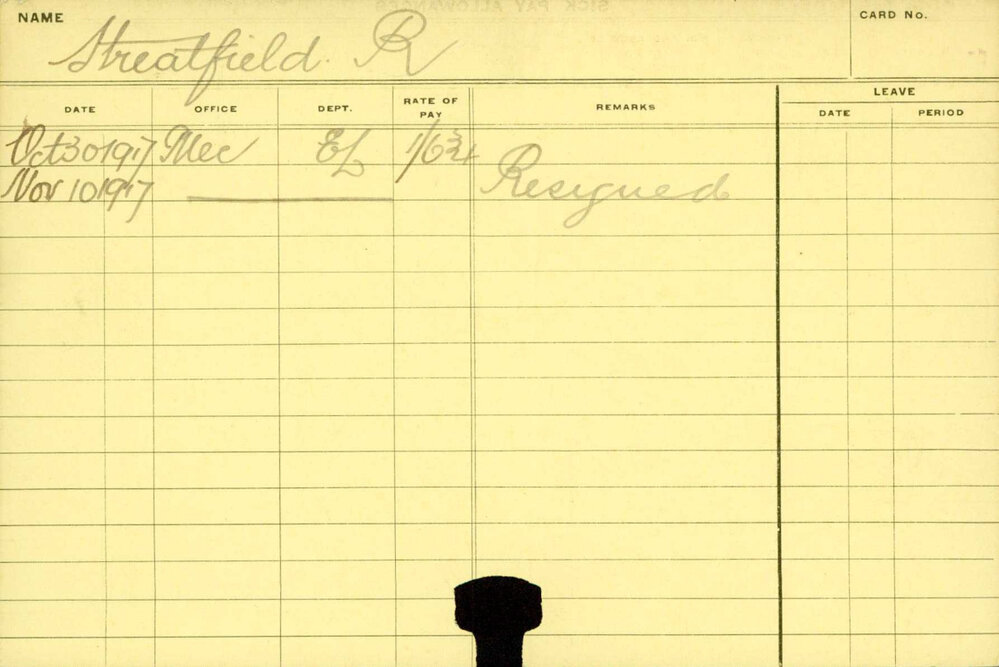 NAME Streatfield. R CARD No.
DATE OFFICE DEPT. RATE OF PAY REMARKS LEAVE
DATE PERIOD
Oct 30 1917 Mec EL 1/6 3/4 Resigned
Nov 10 1917